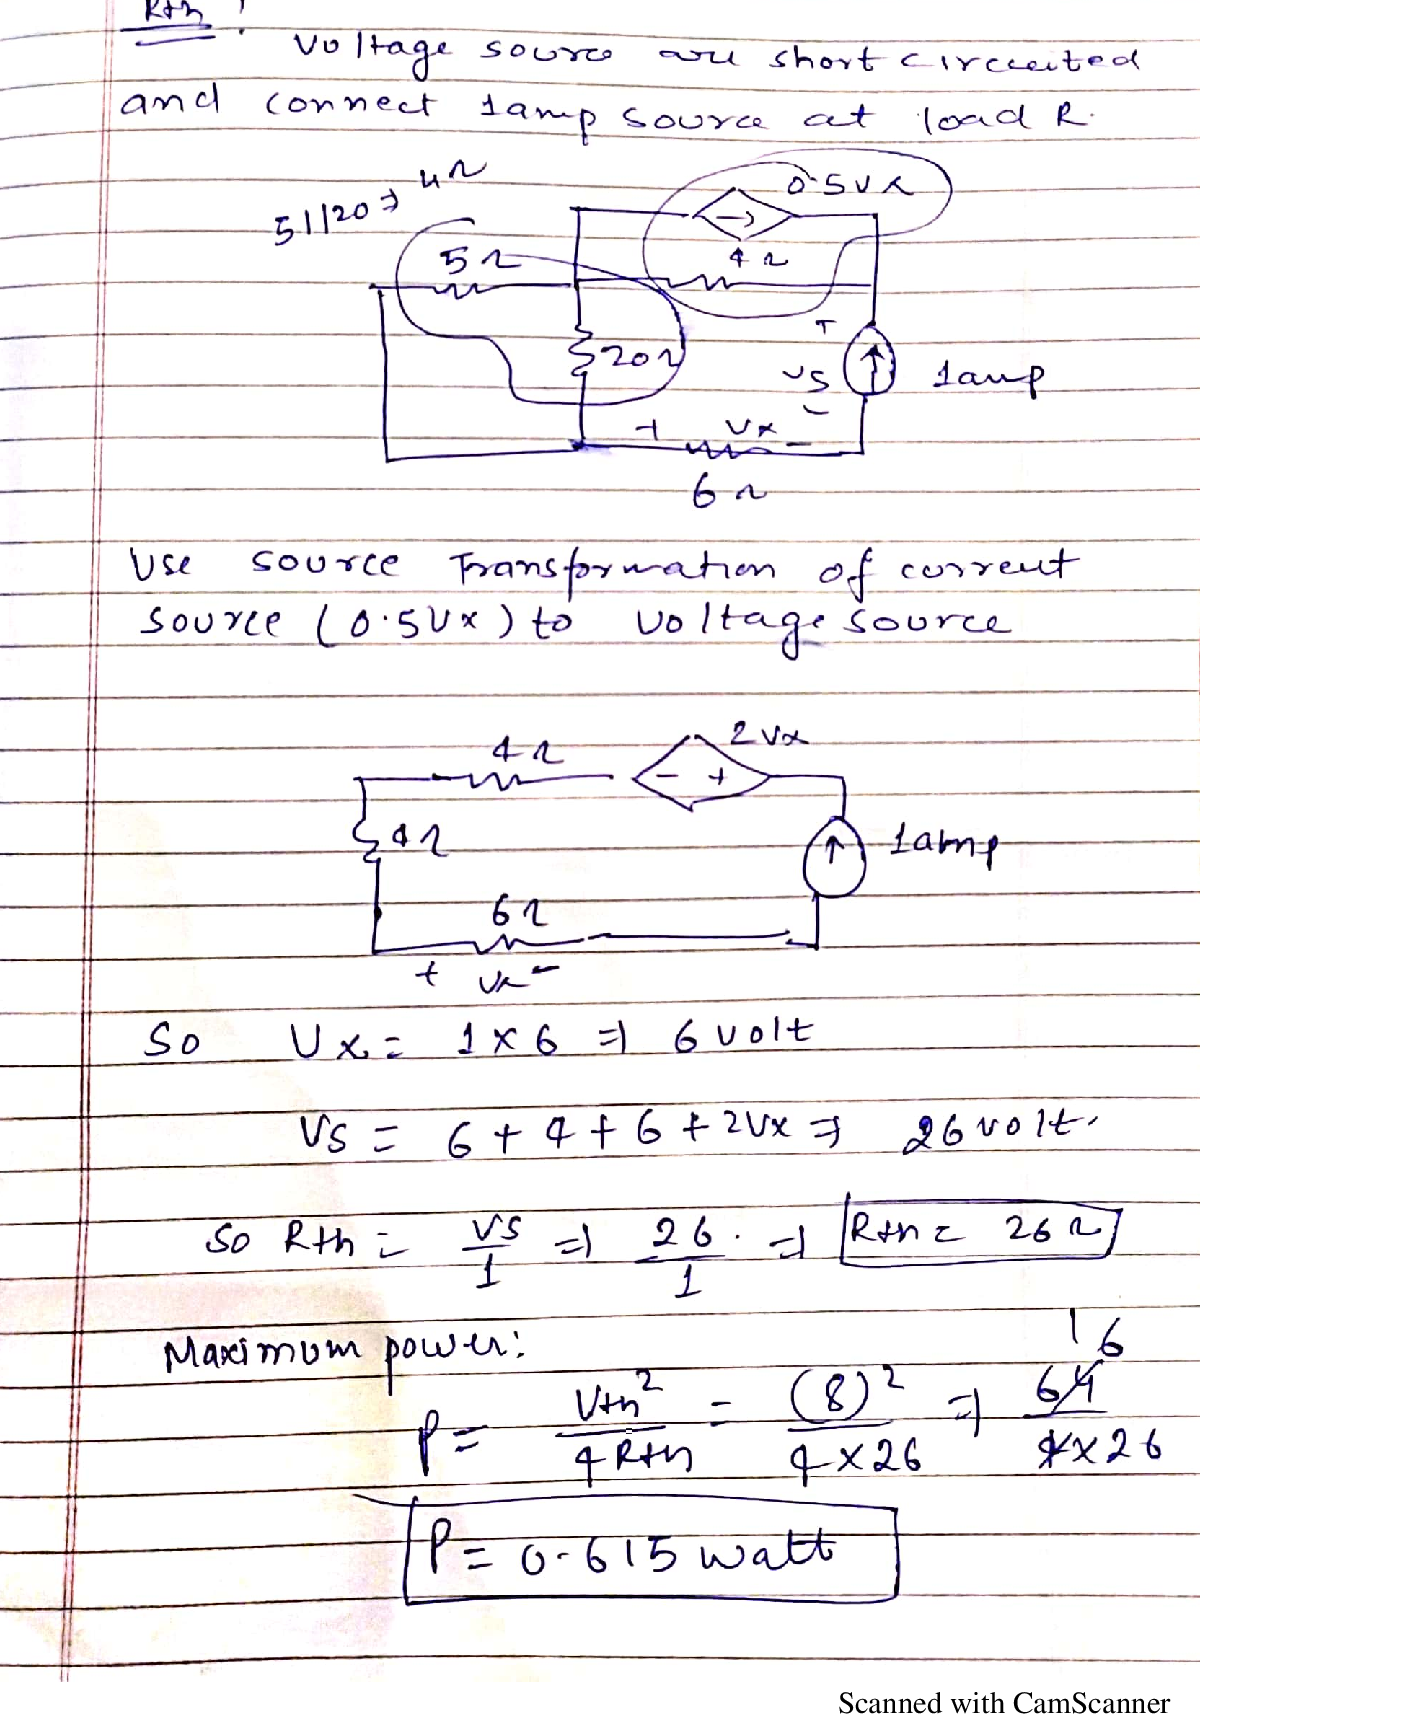 Rth :
Voltage source are short circuited
and connect 1amp source at load R.
5||20 ⇒ 4Ω
0.5Vx
5Ω
4Ω
20Ω
+
Vs
-
1amp
+ Vx -
6Ω
Use source Transformation of current
source (0.5Vx) to voltage source
4Ω
2Vx
- +
4Ω
1amp
6Ω
+ Vx -
So Vx = 1 x 6 ⇒ 6 volt
Vs = 6 + 4 + 6 + 2Vx ⇒ 26 volt.
So Rth = Vs/1 ⇒ 26/1 ⇒ Rth = 26Ω
Maximum power:
P = Vth²/4Rth = (8)²/4x26 ⇒ 64/4x26
16
P = 0.615 watt
Scanned with CamScanner